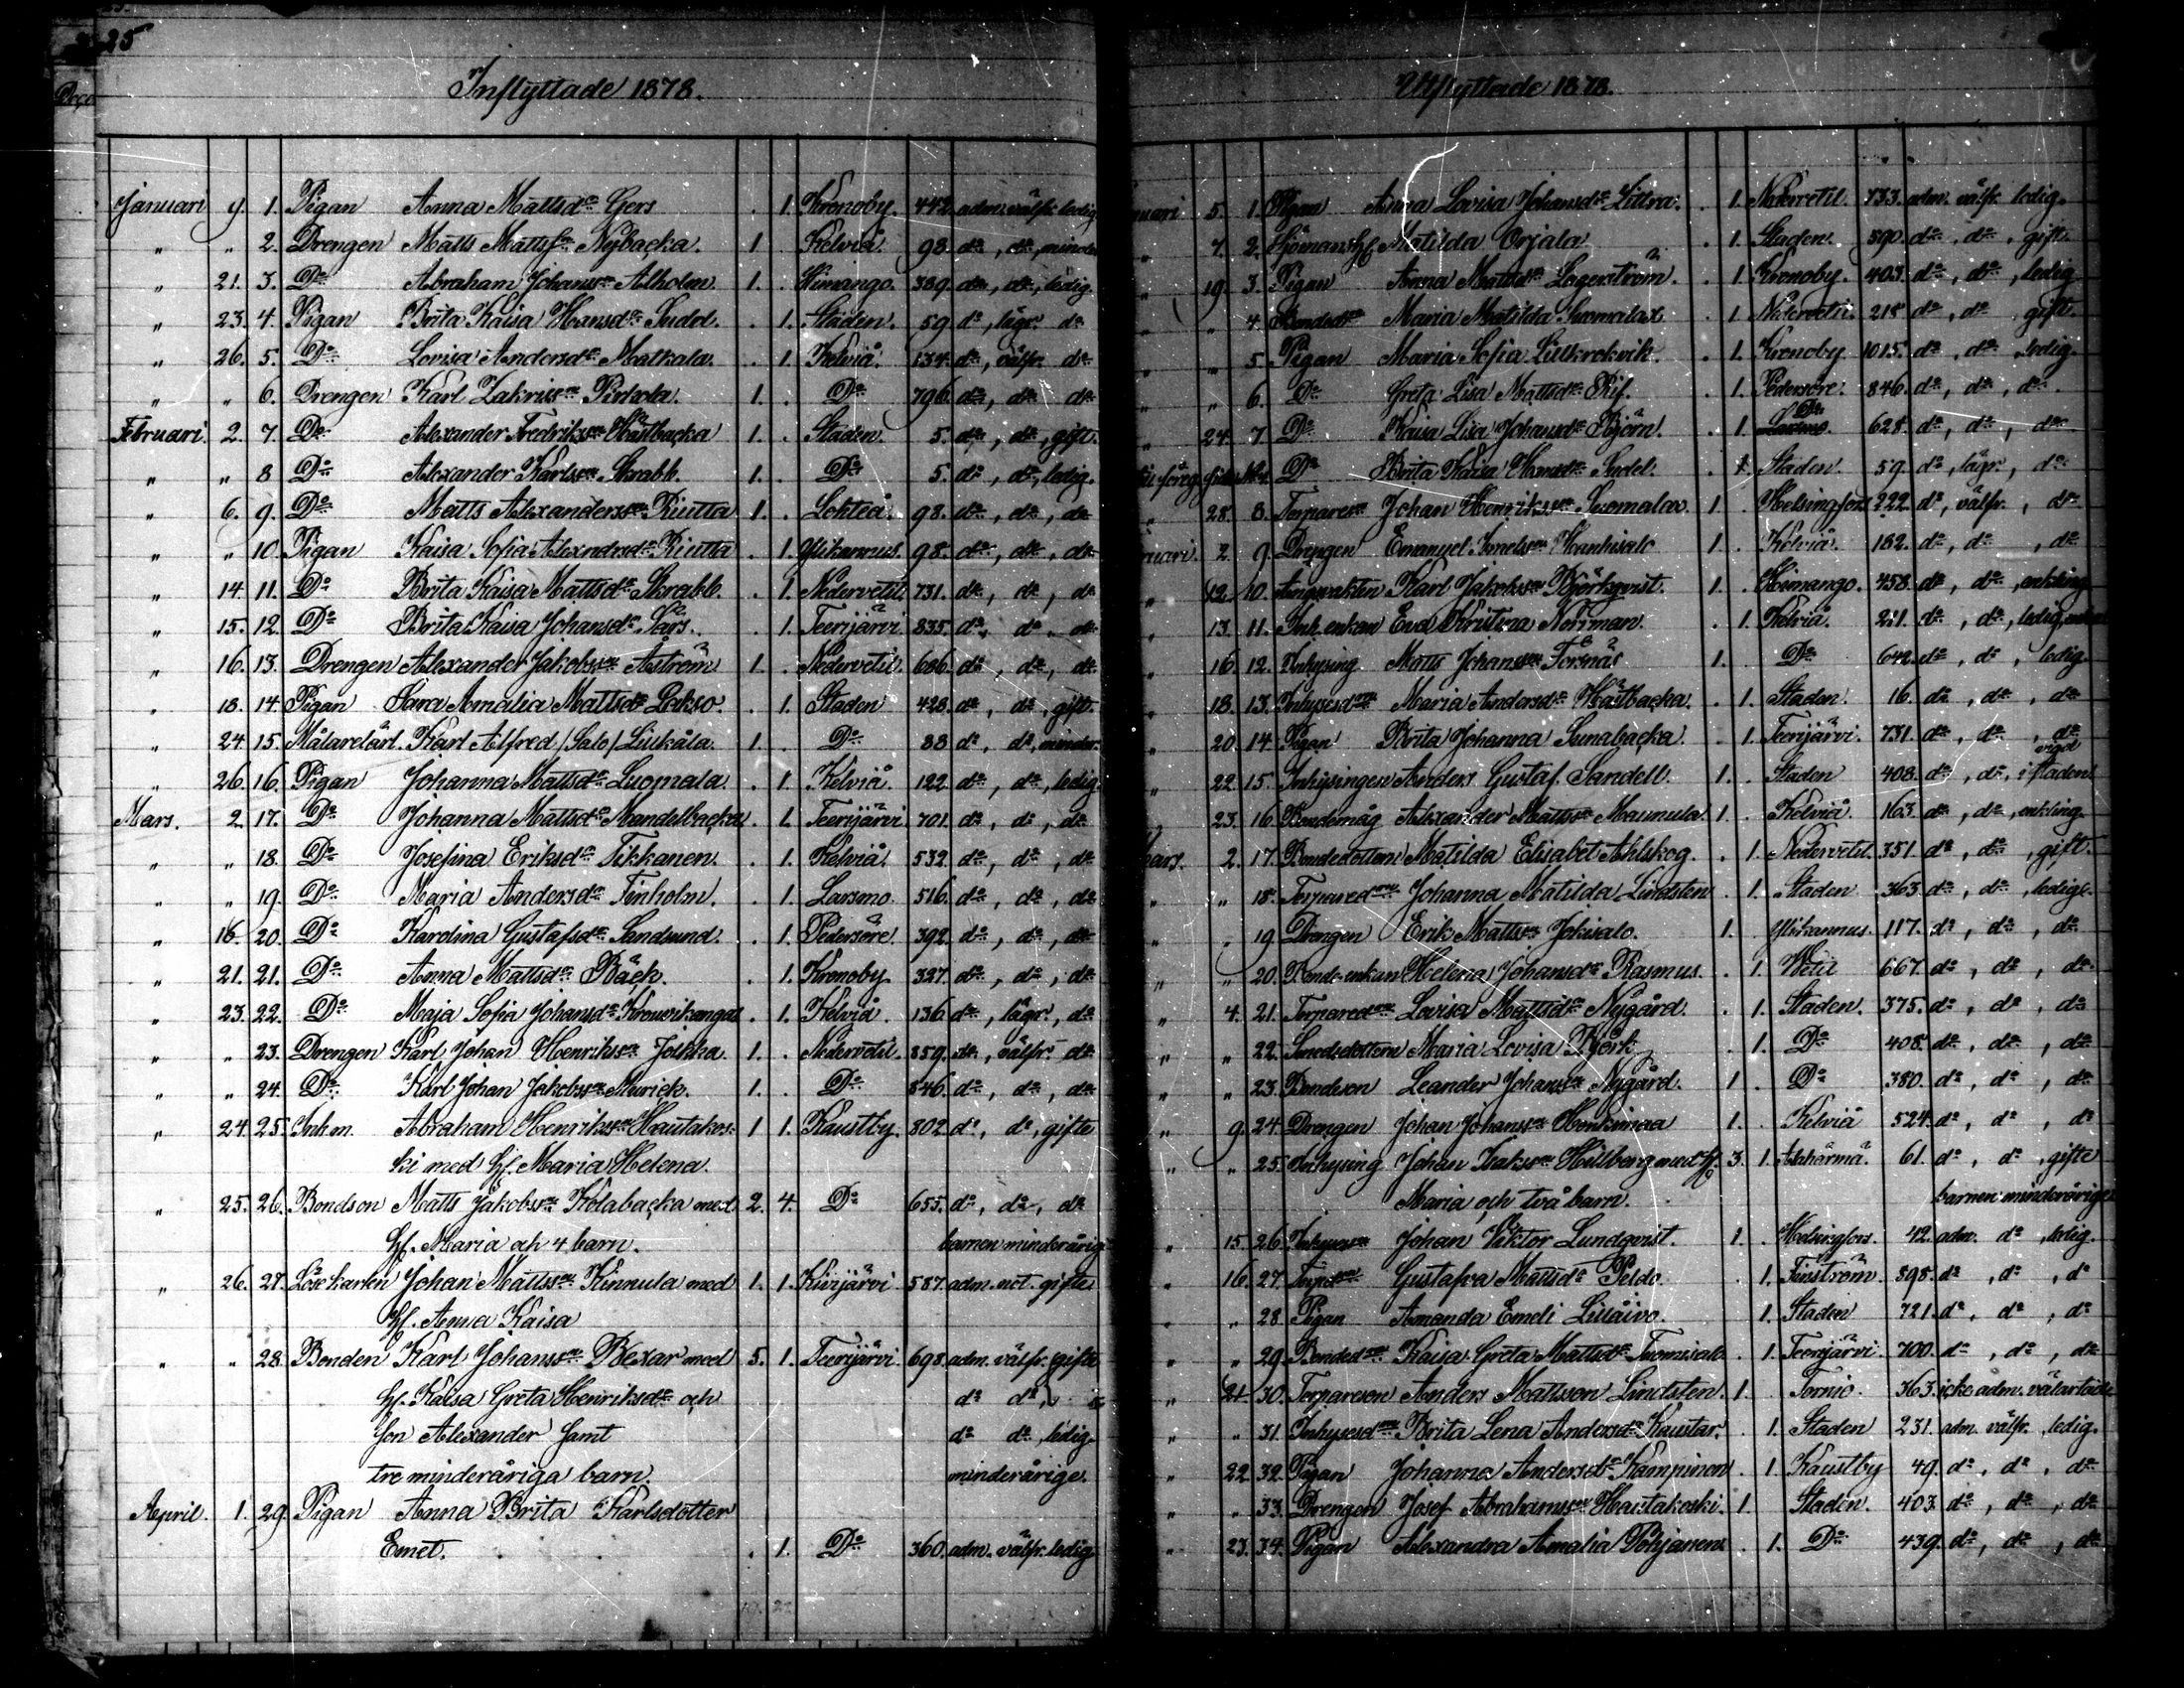 25
Inflyttade 1878.
Januari 9. 1. Pigan Anna Mattsdr Gers . 1. Kronoby. 442 adm. välfr. ledig
" " 2. Drengen Matts Mattss. Nybacka. 1. Kelviå. 98. do, do, minder
" 21. 3. Do Abraham Johanss. Alholm. 1. . Himango. 389. do, do, ledig.
" 23. 4. Pigan Brita Kaisa Hansdr Indol. . 1. Staden. 59. do, lägr. do
" 26. 5. Do Lovisa Andersdr Matkala. . 1. Kelviå. 134. do, välfr. do
" " 6. Drengen Karl Zakriss. Pirkola. 1. . Do 796. do, do do
Februari. 2. 7. Do Alexander Fredrikss. Hästbacka 1. . Staden. 5. do, do, gift.
" " 8 Do Alexander Karlss. Skrabb. 1. . Do 5. do, do, ledig.
" 6. 9. Do Matts Alexanderss. Riutta 1. . Lohteå. 98. do, do, do
" " 10. Pigan Kaisa Sofia Alexandersdr Riutta . 1. Ylikannus. 98. do, do, do
" 14. 11. Do Brita Kaisa Mattsdr Skrabb. . 1. Nedervetil. 731. do, do, do
" 15. 12. Do Brita Kaisa Johansdr Lårs. . 1. Teerijärvi 835. do, do, do
" 16. 13. Drengen Alexander Jakobss. Åström 1. . Nedervetil. 686. do, do, do
" 18. 14. Pigan Sara Amalia Mattsdr Lakso. . 1. Staden 428. do, do, gift.
" 24 15. Målarelärl. Karl Alfred /Salo/ Liukåla. 1. . Do 88 do, do, minder.
" 26. 16. Pigan Johanna Mattsdr Luomala. . 1. Kelviå. 122. do, do, ledig.
Mars. 2. 17. Do Johanna Mattsdr Mandelbacka . 1. Teerijärvi. 701. do, do, do
" " 18. Do Josefina Eriksdr Tikkanen. . 1. Kelviå. 532. do, do, do
" " 19. Do Maria Andersdr Finholm. . 1. Larsmo. 516. do, do, do
" 16. 20. Do Karolina Gustafsdr Sandsund. . 1. Pedersöre. 392. do, do, do
" 21. 21. Do Anna Mattsdr Bäck. . 1. Kronoby. 327. do, do, do
" 23. 22. Do Maja Sofia Johansdr . 1. Kelviå. 136. do, lägr., do
" " 23. Drengen Karl Johan Henrikss. Jolkka. 1. . Nedervetil. 859. do, välfr. do
" " 24. Do Karl Johan Jakobss. Murick. 1. . Do 846. do, do, do
" 24. 25. Inh.m. Abraham Henrikss. Hautakos- 1 1. Kaustby. 802. do, do, gifte
ki med hf. Maria Helena.
" 25. 26. Bondson Matts Jakobss. Kolabacka med 2. 4. Do 655. do, do, do
hf. Maria och 4 barn. barnen minderårig
" 26. 27. Löse karlen Johan Mattss. Kinnula med 1. 1. Kivijärvi 587. adm. not. gifte
hf. Anna Kaisa
" " 28. Bonden Karl Johanss. Rexar med 5. 1. Teerijärvi 698. adm. välfr. gifte
hf. Kaisa Greta Henriksdr och do do
son Alexander samt do do, ledig.
tre minderåriga barn. minderårige.
April. 1. 29. Pigan Anna Brita Karlsdotter
Emet. . 1. Do 360. adm. välfr. ledig
Utflyttade 1878.
nuari 5. 1. Pigan Anna Lovisa Johansdr Littra. . 1. Nedervetil. 733. adm. välfr. ledig.
" 7. 2. Sjömans hf. Matilda Orjala. . 1. Staden. 590. do, do, gift.
" 19. 3. Pigan Anna Mattsdr Lagerström. . 1. Kronoby. 403. do, do, ledig
" " 4. Bondedr Maria Matilda Suomalax . 1. Nedervetil. 218 do, do, gift.
" " 5. Pigan Maria Sofia Lillkrokvik. . 1. Kronoby. 1015. do, do, ledig.
" " 6. Do Greta Lisa Mattsdr Rif. . 1. Pedersöre. 846. do, do, do.
" 24. 7. Do Kaisa Lisa Johansdr Björn. . 1. Do 628. do, do, do
Do Brita Kaisa Hansdr Indol. . 1. Staden. 59. do, lägr., do
" 28. 8. Torpareson Johan Henrikss. Suomalax. 1. Helsingfors 222. do, välfr., do
ruari. 2. 9. Drengen Emanuel Hanhisalo 1. . Kelviå. 182. do, do, do
" 12. 10. Karl Jakobss. Björkqvist. 1. . Himango. 458. do, do, enkling
" 13. 11. Inh. enkan Eva Kristina Norrman. . 1. Kelviå. 221. do, do, ledig,
" 16. 12. Inhysing Matts Johanss. Torsnäs 1. Do 642. do, do, ledig.
" 18. 13. Inhysesdr Maria Andersdr Hästbacka. . 1. Staden. 16. do, do, do
" 20. 14. Pigan Brita Johanna Sunabacka. . 1. Teerijärvi. 731. do, do, do
" 22. 15. Inhysingen Anders Gustaf Sandell. 1. . Staden 408. do, do, vigd i staden
" 23. 16. Bondemåg Alexander Mattss. Maunula. 1. . Kelviå 163. do, do, enkling.
ars. 2. 17. Bondedottern Matilda Elisabet Ahlskog. . 1. Nedervetil. 351. do, do, gift.
" " 18. Torparedr Johanna Matilda Lindsten . 1. Staden 363. do, do, ledige.
" " 19. Drengen Erik Mattss. Jokisalo. 1. Ylikannus. 117. do, do, do
" " 20. Bonde enkan Helena Johansdr Rasmus. . 1. Vetil 667. do, do, do
" 4. 21. Torparedr Lovisa Mattsdr Nygård. . 1. Staden. 375. do, do, do
" " 22. Smedsdottern Maria Lovisa Björk . 1. Do 408. do, do, do
" " 23. Bondeson Leander Johanss. Nygård. 1 Do 380. do, do, do
" 9. 24. Drengen Johan Johanss. Honkimaa 1. . Kelviå 524. do, do, do
" " 25. Inhysing Johan Isakss. Hillberg med hf. 3. 1. Alahärmä. 61. do, do, gifte
Maria och två barn. barnen minderårige
" 15. 26. Inhyseson Johan Viktor Lundqvist. 1. . Helsingfors. 42. adm. do, ledig.
" 16. 27. Gustafva Mattsdr Peldo. . 1. Finström. 898. do, do, do
" " 28. Pigan Amanda Emeli Lillåivo. 1. Staden 721. do, do, do
" " 29. Bondedr Kaisa Greta Mattsdr Tuomisalo . 1. Teerijärvi 700. do, do, do
" 21. 30. Torpareson Anders Mattsson Lindsten. 1. Tornio. 363. icke adm. välartade
" " 31. Inhysesdr Brita Lena Andersdr Kaustar. . 1. Staden 231. adm. välfr., ledig.
" 22. 32. Pigan Johanna Andersdr Kampinen . 1. Kaustby 49. do, do, do
" " 33. Drengen Josef Abrahamss. Hautakoski. 1. Staden. 403. do, do, do
" 23. 34. Pigan Alexandra Amalia Pohjanen . 1. Do 439. do, do, do